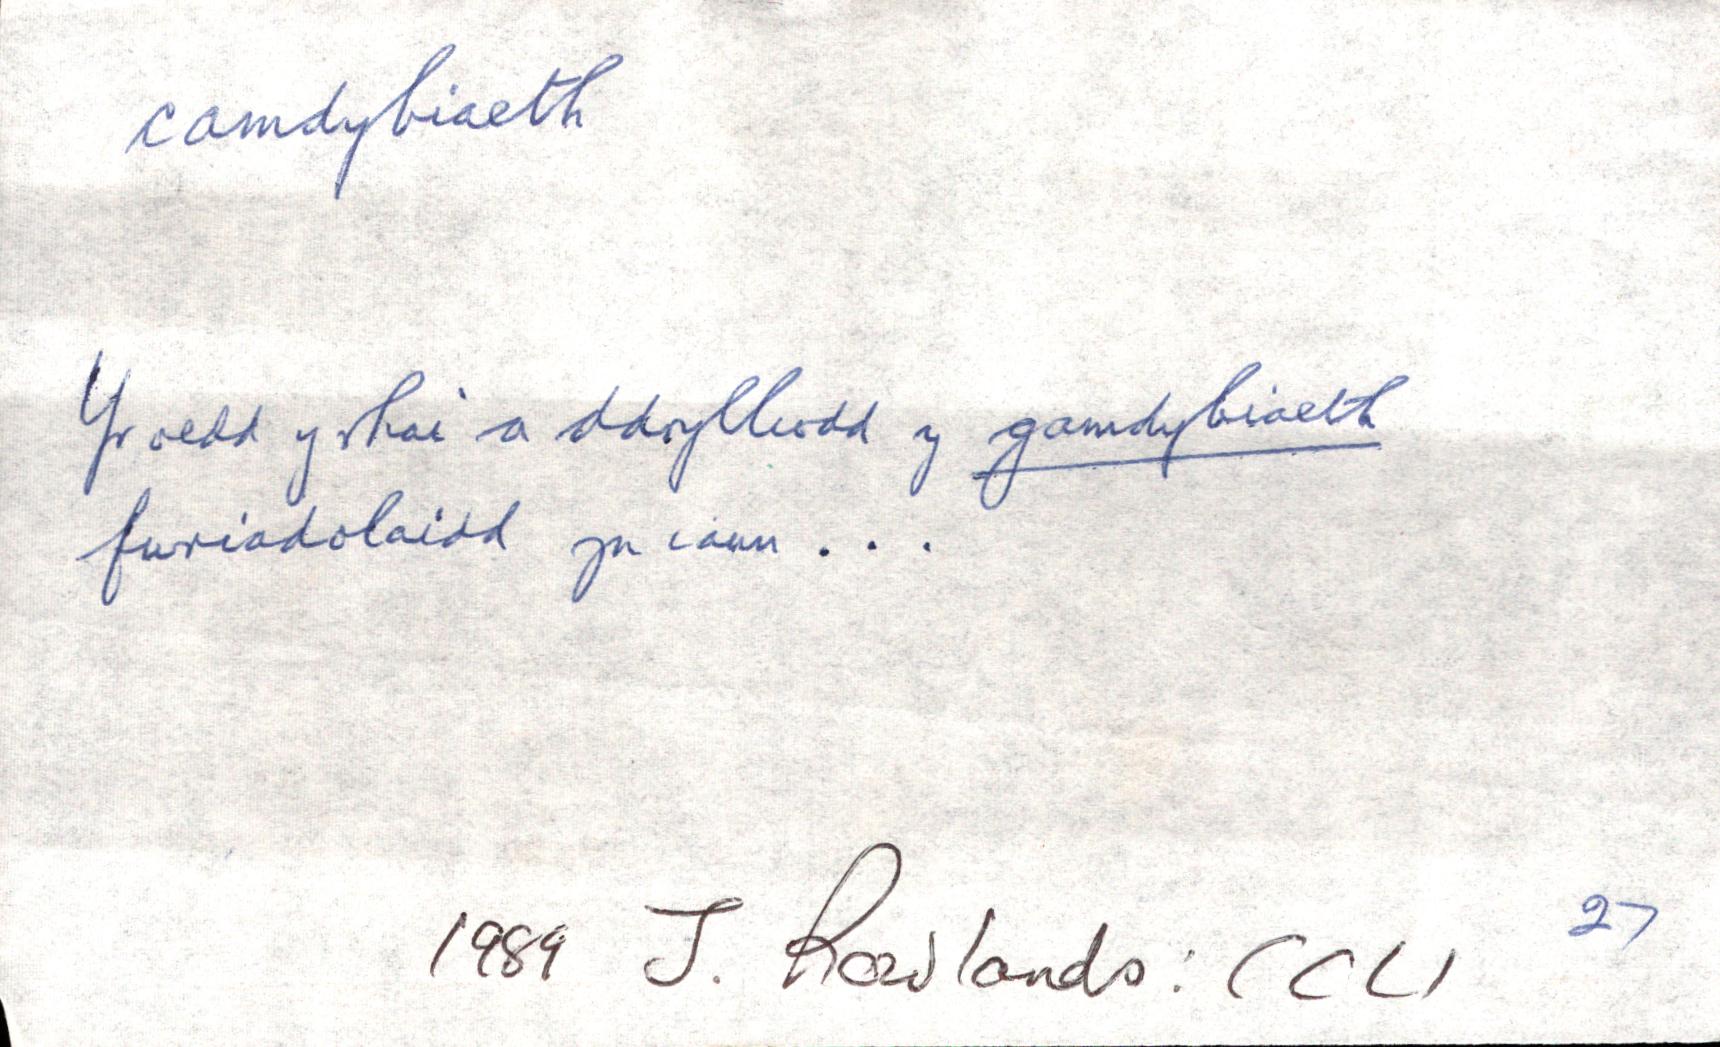 camdybiaeth
Yr oedd y rhai a ddrylliodd y gamdybiaeth
fwriadolaidd yn iawn . . .
27
1989 J. Rowlands: CCLl